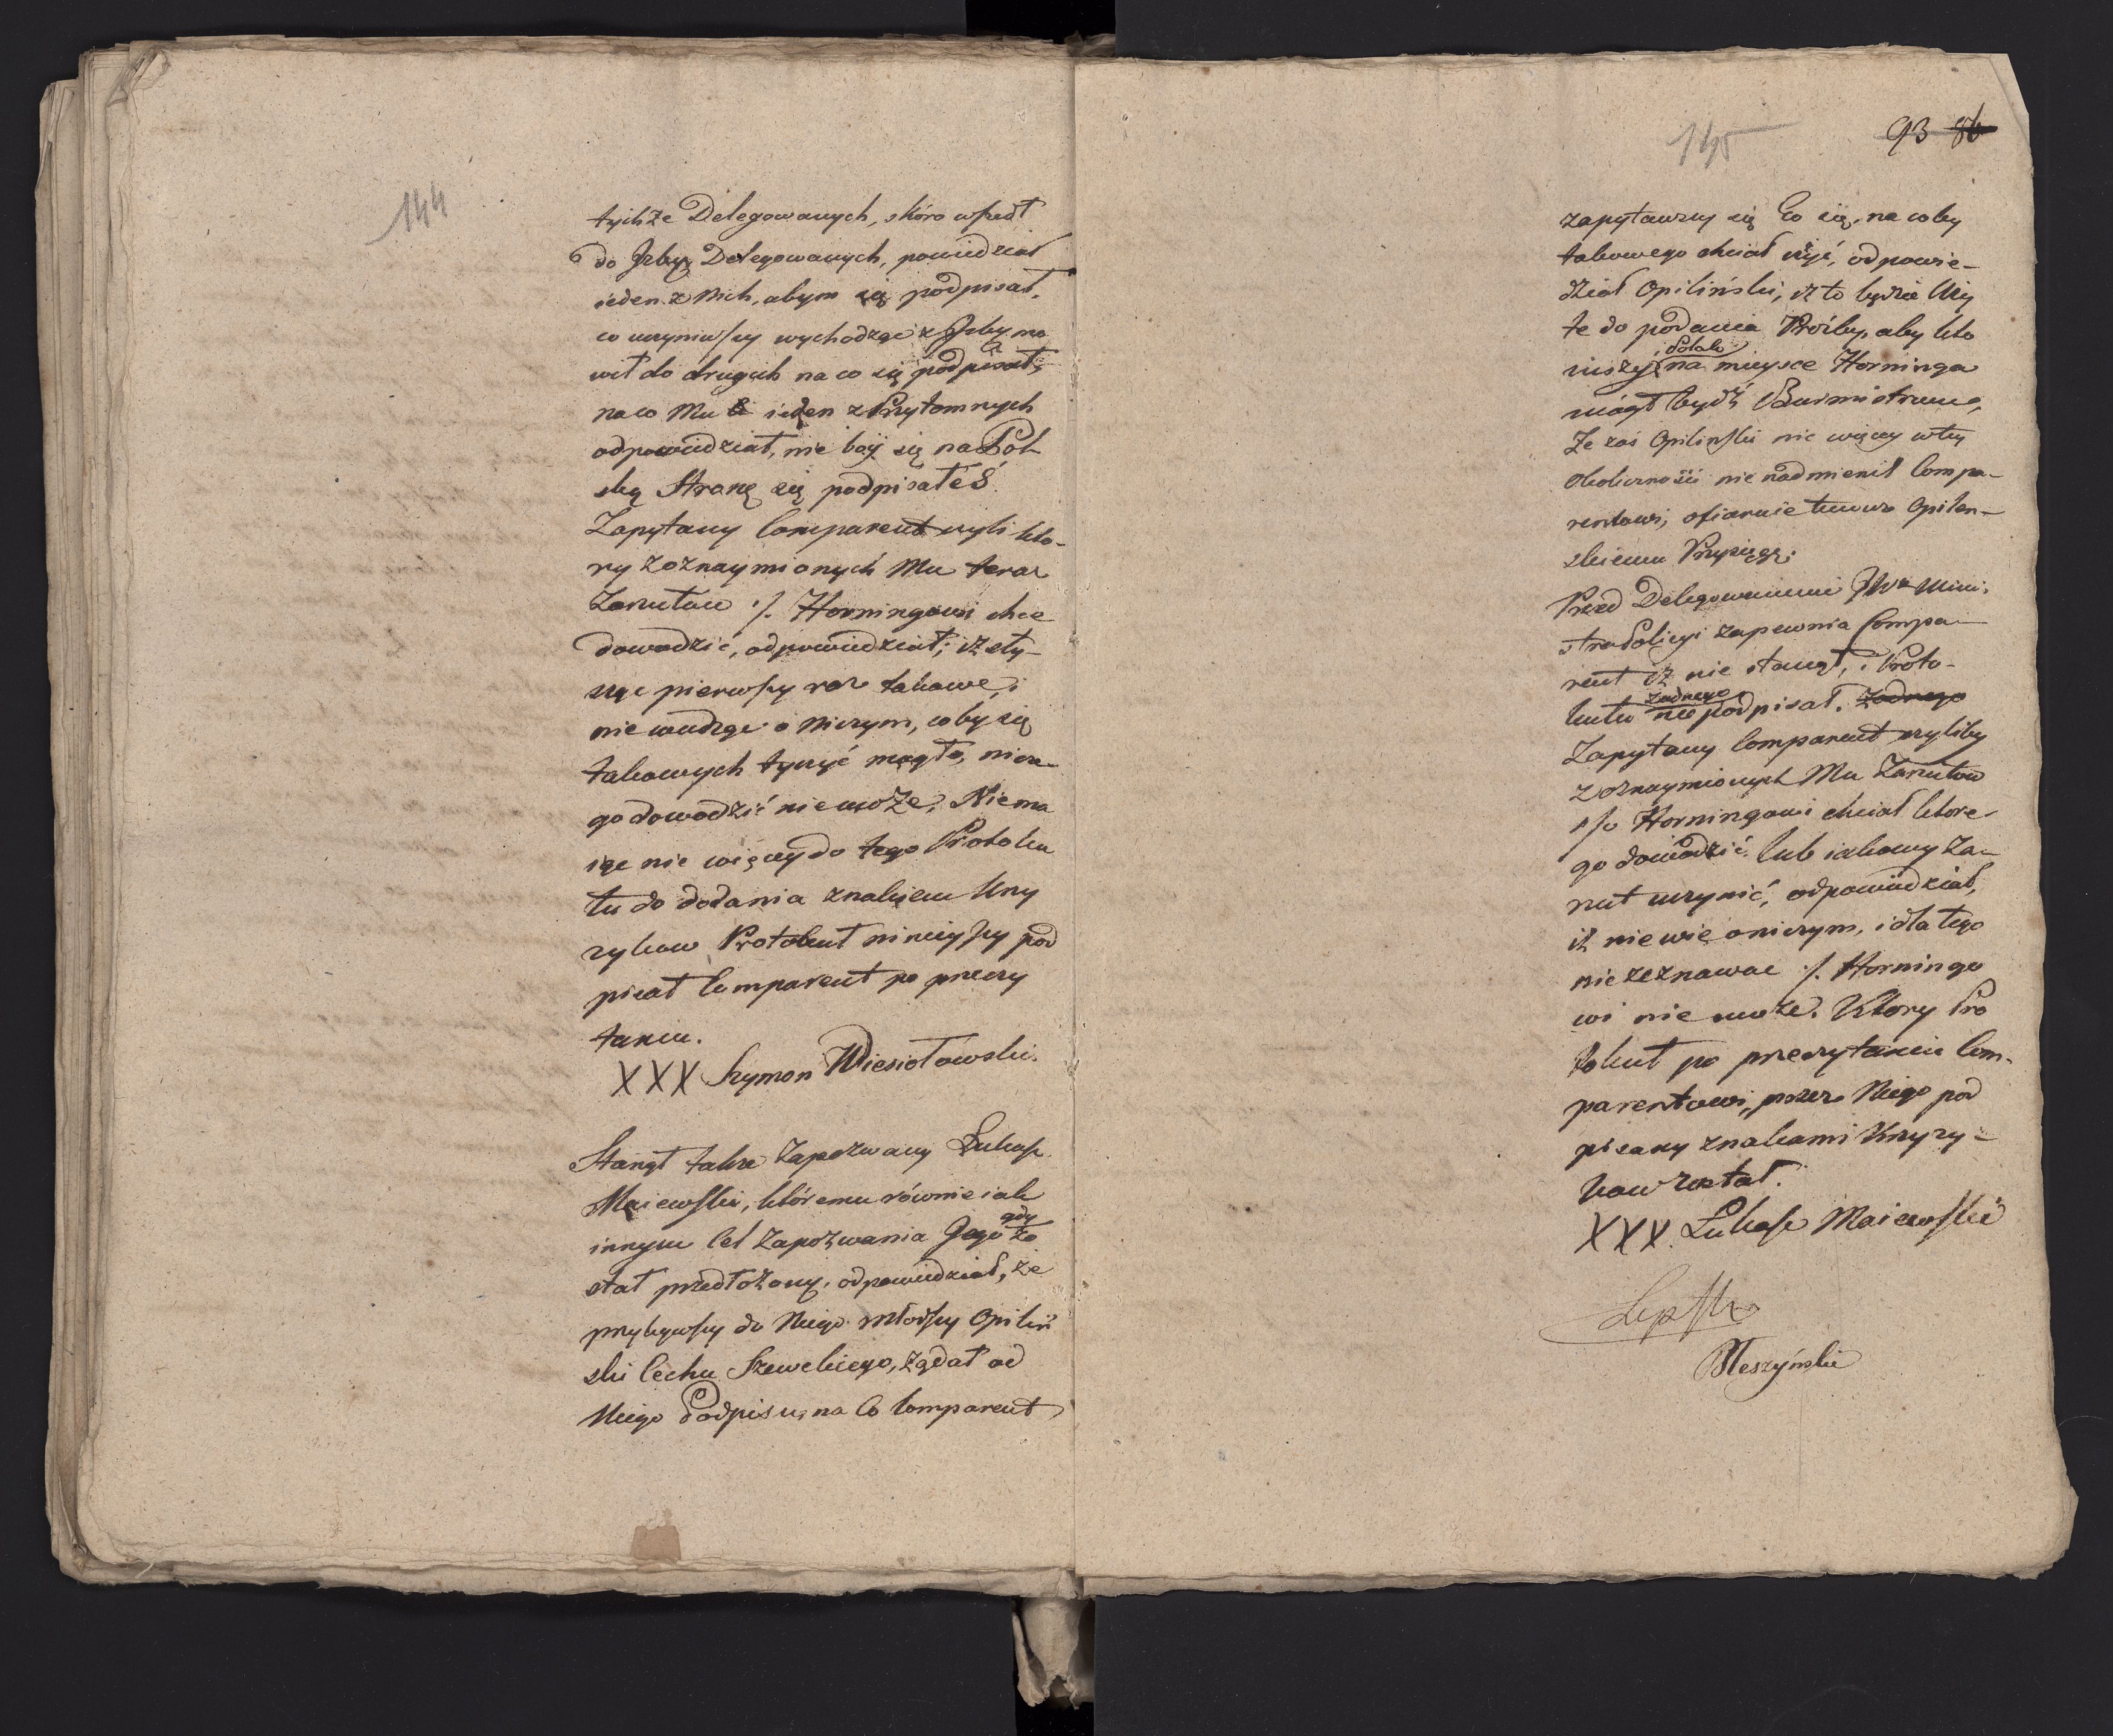 144
tychże Delegowanych, skóro wszedł
do Jzby Delegowanych, powiedział
ieden z Nich, abym się podpisał,
co uczyniwszy wychodząc z Jzby mo
wił do drugich na co się podpisał,
na co Mu ieden z Przytomnych
odpowiedział, nie bóy się na Pol
ską Stronę się podpisałeś.
Zapytany Comparent czyli któ-
ry z oznaymionych Mu teraz
Zarzutow ./. Horningowi chce
dowodzić, odpowiedział; iż sły-
sząc pierwszy raz takowe, i
nie wiedząc o niczym, coby się
takowych tyczyć mogło, nicze-
go dowodzić nie może. Niema
iąc nic więcey do tego Protoku
łu do dodania znakiem Krzy
zykow Protokuł ninieyszy pod
pisał Comparent po przeczy
taniu.
XXX Szymon Wiesiołowski.
Stanął także Zapozwany Łukasz
Maiewski, któremu równie iak
innym Cel Zapozwania Jego gdy zo
stał przedłożony, odpowiedział, że
przybywszy do Niego młodszy Opiliń
ski Cechu Szewckiego, żądał od
Niego Podpisu, na Co Comparent
145
93 86
zapytawszy się Co się, na coby
takowego chciał użyć, odpowie-
dział Opiliński, iż to będzie Uży
te do podania Prośby, aby kto
inszy Polak na mieysce Horninga
mógł bydź Burmistrzem,
Że zaś Opiliński nic więcy w tey
Okoliczności nie nadmienił Compa-
rentowi, ofiaruie temuż Opilin-
skiemu Przysięgę.
Przed Delegowanemi JWo Mini-
stra Policyi zapewnia Compa-
rent iż nie stanął, i Proto-
kułu żadnego nie podpisał. żadnego
Zapytany Comparent czyliby
z oznaymionych Mu Zarzutow
./. Horningowi chciał które-
go dowodzić lub iakowy Za-
rzut uczynić, odpowiedział,
iż nie wie o niczym, i dla tego
nic zeznawac ./. Horningo
wi nie może. Ktory Pro
tokuł po przeczytaniu Com-
parentowi, przez Niego pod
pisany znakami Krzyzy-
kow został.
XXX. Łukasz Maiewski
Pleszyński